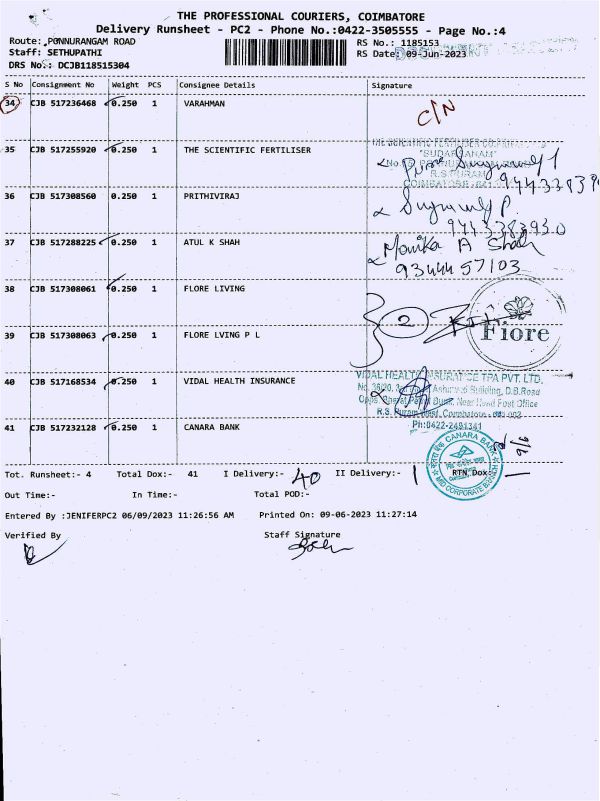 THE PROFESSIONAL COURIERS, COIMBATORE
Delivery Runsheet - PC2 - Phone No.:0422-3505555 - Page No.:4
Route: PONNURANGAM ROAD
RS No.: 1185153
Staff: SETHUPATHI
RS Date: 09-Jun-2023
DRS No.: DCJB118515304
S No Consignment No Weight PCS Consignee Details Signature
34 CJB 517236468 0.250 1 VARAHMAN C/N
35 CJB 517255920 0.250 1 THE SCIENTIFIC FERTILISER
"SUDARSANAM"
R.S.PURAM
COIMBATORE - 641
36 CJB 517308560 0.250 1 PRITHIVIRAJ
P.
9443383930
37 CJB 517288225 0.250 1 ATUL K SHAH Monika A Shah
93444 57103
38 CJB 517308061 0.250 1 FLORE LIVING
2
Fiore
39 CJB 517308063 0.250 1 FLORE LVING P L
40 CJB 517168534 0.250 1 VIDAL HEALTH INSURANCE
VIDAL HEALTH INSURANCE TPA PVT. LTD.
Building, D.B.Road
Near Head Post Office
Ph:0422-2491341
41 CJB 517232128 0.250 1 CANARA BANK
CANARA BANK
MID CORPORATE BRANCH
9/6
Tot. Runsheet:- 4 Total Dox:- 41 I Delivery:- 40 II Delivery:- 1 RTN Dox:-
Out Time:- In Time:- Total POD:-
Entered By :JENIFERPC2 06/09/2023 11:26:56 AM Printed On: 09-06-2023 11:27:14
Verified By Staff Signature